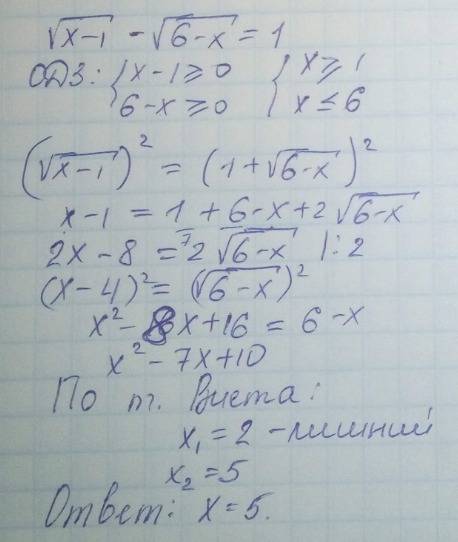 √x-1 - √6-x = 1
ОДЗ: { x-1 ≥ 0 { x ≥ 1
6-x ≥ 0 x ≤ 6
(√x-1)² = (1+√6-x)²
x-1 = 1 + 6-x+2√6-x
2x-8 = 2√6-x |:2
(x-4)² = (√6-x)²
x²-8x+16 = 6-x
x²-7x+10
По т. Виета:
x₁ = 2 - лишний
x₂ = 5
Ответ: x = 5.